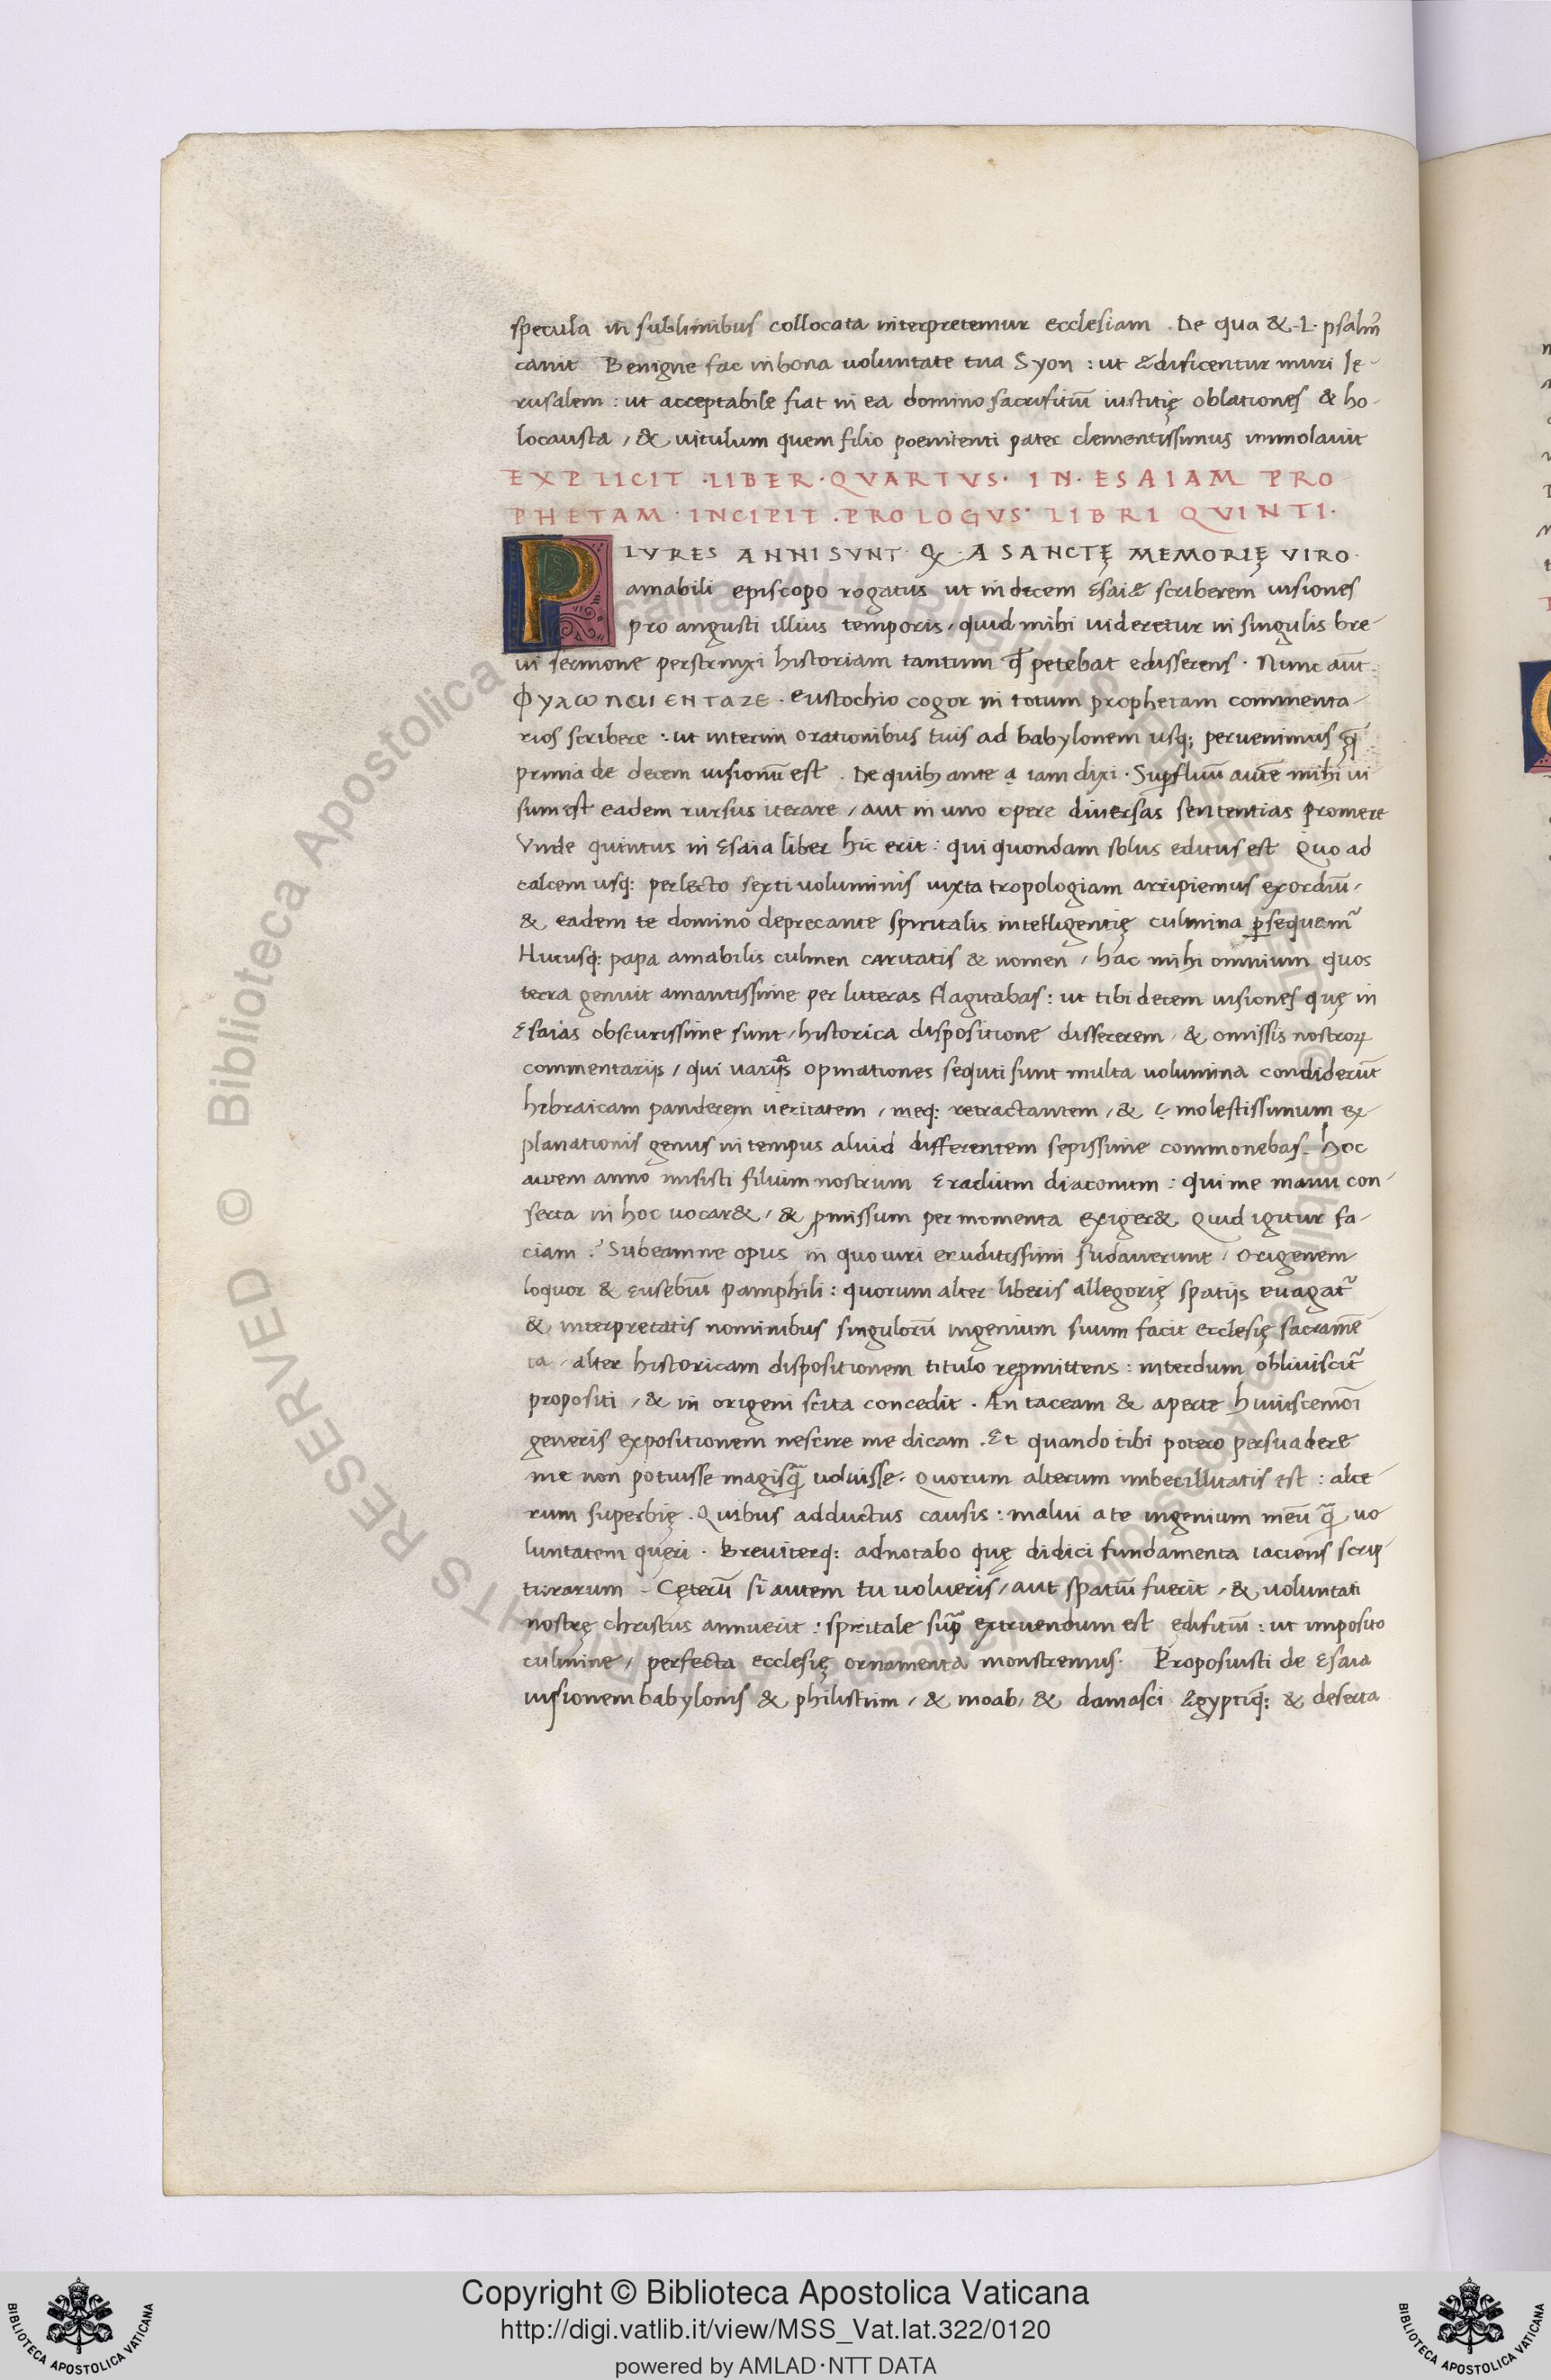 specula in sublimibus collocata interpretemur ecclesiam . De qua &·L· psalm̃
canit Benigne fac in bona uoluntate tua Syon : ut ædificentur muri Ie-
rusalem : ut acceptabile fiat in ea domino sacrifitiũ iustitię oblationes & ho-
locausta / & uitulum quem filio poenitenti pater clementissimus immolauit
EXPLICIT ·LIBER·QVARTVS· IN· ESAIAM PRO
PHETAM · INCIPIT .PROLOGVS· LIBRI QVINTI·
PLVRES ANNI SVNT· Qꝫ ·A SANCTĘ MEMORIĘ VIRO·
amabili episcopo rogatus ut in decem Esaiæ scriberem uisiones
pro angusti illius temporis / quid mihi uideretur in singulis bre-
ui sermone perstrinxi historiam tantum qđ petebat edisserens . Nunc aũt
ΦΥλω ΠCΙΙ ΕΝΤΑΖΕ . eustochio cogor in totum prophetam commenta-
rios scribere : ut interim orationibus tuis ad babylonem usq; peruenimus q̃
prima de decem uisionũ est . De quibꝫ ante ą iam dixi . Supfluũ autẽ mihi ui
sum est eadem rursus iterare / aut in uno opere diuersas sententias promere
Vnde quintus in Esaia liber hic erit : qui quondam solus editus est Quo ad
calcem usq: perlecto sexti uoluminis iuxta tropologiam arripiemus exordiũ /
& eadem te domino deprecante spiritalis intelligentię culmina ꝑsequemr̃
Hucusq: papa amabilis culmen caritatis & nomen / hac mihi omnium quos
terra genuit amantissime per litteras flagitabas : ut tibi decem uisiones quę in
Esaias obscurissime sunt / historica dispositione dissererem / & omissis nostroꝝ
commentariis / qui uariis opinationes sequti sunt multa uolumina condiderũt
hebraicam panderem ueritatem / meq: retractantem / & ę molestissimum ex-
planationis genus in tempus aliud differentem sepissime commonebas . hoc
autem anno misisti filium nostrum Eradium diaconum : qui me manu con-
serta in hoc uocar& / & ꝓmissum per momenta exiger& Quid igitur fa-
ciam ? Subeamne opus in quo uiri eruditissimi sudauerunt / Origenem
loquor & eusebiũ pamphili : quorum alter liberis allegorię spatiis euagat᷑
& interpretatis nominibus singulorũ ingenium suum facit ecclesię sacramẽ
ta / alter historicam dispositionem titulo reꝓmittens : interdum obliuiscit᷑
propositi / & in origeni scita concedit . An taceam & aperte huiuscemõi
generis expositionem nescire me dicam . Et quando tibi potero persuadere
me non potuisse magisq̃ uoluisse . Quorum alterum imbecillitatis est : alte-
rum superbię . Quibus adductus causis : malui a te ingenium meũ q̃ uo
luntatem queri . Breuiterq: adnotabo quę didici fundamenta iaciens scrip-
turarum - Cęterũ si autem tu uolueris / aut spatiũ fuerit / & uoluntati
nostrę christus annuerit : spiritale sup̃ extruendum est ędifitiũ : ut imposito
culmine / perfecta ecclesię ornamenta monstremus . Proposuisti de Esaia
uisionem babylonis & philistiim / & moab / & damasci ægyptiq̃: & deserta
Copyright © Biblioteca Apostolica Vaticana
http://digi.vatlib.it/view/MSS_Vat.lat.322/0120
powered by AMLAD·NTT DATA